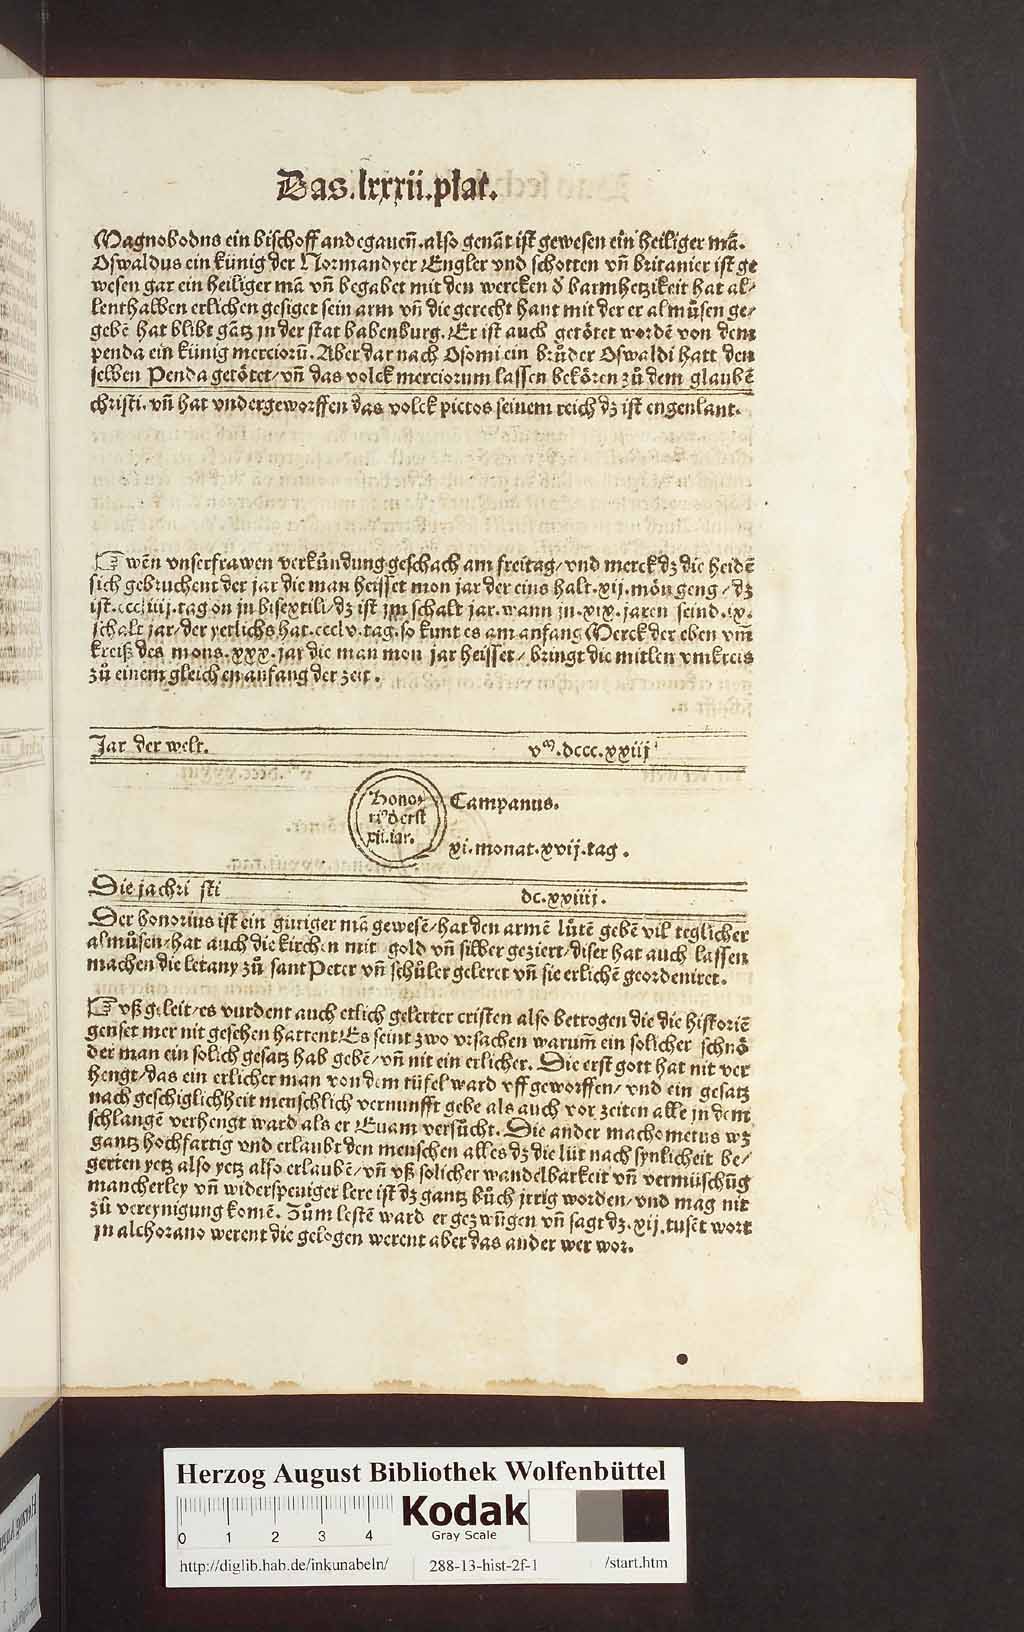 Das.lxxxii.plat.
Magnobodus ein bischoff andegaueñ.also genãt ist gewesen ein heiliger mã.
Oswaldus ein künig der Normandyer Engler vnd schotten vñ britanier ist ge
wesen gar ein heiliger mã vñ begabet mit den wercken d̕ barmhertzikeit hat al/
lenthalben erlichen gesiget sein arm vñ die gerecht hant mit der er almůsen ge/
gebẽ hat blibt gãtz jn der stat babenburg. Er ist auch getötet wordẽ von dem
penda ein künig mercioru᷑. Aber dar nach Osomi ein brůder Oswaldi hatt den
selben Penda getötet/vñ das volck merciorum lassen bekören zů dem glaubẽ
christi.vñ hat vndergeworffen das volck pictos seinem reich dʒ ist engenlant.
☞ wẽn vnserfrawen verkůndung geschach am freitag/vnd merck dʒ die heidẽ
sich gebruchent der jar die man heisset mon jar der eins halt.xij.mõn geng/dʒ
ist.cccliiij.tag on jn bisextili/dʒ ist jm schalt jar.wann jn.xix.jaren seind.ix.
schalt jar/der yetlichs hat.ccclv.tag.so kunt es am anfang Merck der eben vm̃
kreiß des mons.xxx.jar die man mon jar heisset/bringt die mitlen vmkreis
zů einem gleichen anfang der zeit.
Jar der welt. vᵐ.dccc.xxiij
Hono/
ri⁹ d̕ erst
xii.iar.
Campanus.
xi.monat.xvij.tag.
Die ja chri sti dc.xxiiij.
Der honorius ist ein gütiger mã gewesẽ/hat den armẽ lůtẽ gebẽ vil teglicher
almůsen/hat auch die kirchen mit gold vñ silber geziert/diser hat auch lassen
machen die letany zů sant Peter vñ schůler geleret vñ sie erlichẽ geordeniret.
☞ vß geleit/es wurdent auch etlich gelerter cristen also betrogen die die historiẽ
genset mer nit gesehen hattent/Es seint zwo vrsachen warum̃ ein solicher schnö
der man ein solich gesatz hab gebẽ/vñ nit ein erlicher. Die erst gott hat nit ver
hengt/das ein erlicher man von dem tüfel ward vff geworffen/vnd ein gesatz
nach geschiglichheit menschlich vernunfft gebe als auch vor zeiten alle jn dem
schlangẽ verhengt ward als er Euam versůcht. Die ander machometus wʒ
gantz hochfartig vnd erlaubt den menschen alles dʒ die lüt nach synlicheit be/
gerten yetz also yetz also erlaubẽ/vñ vß solicher wandelbarkeit vñ vermüschũg
mancherley vñ widerspeniger lere ist dʒ gantz bůch jrrig worden/vnd mag nit
zů vereynigung komẽ. Zům lestẽ ward er gezwũgen vñ sagt dʒ.xij.tusẽt wort
jn alchorano werent die gelogen werent aber das ander wer wor.
Herzog August Bibliothek Wolfenbüttel
0 1 2 3 4
Kodak
Gray Scale
http://diglib.hab.de/inkunabeln/ 288-13-hist-2f-1 /start.htm